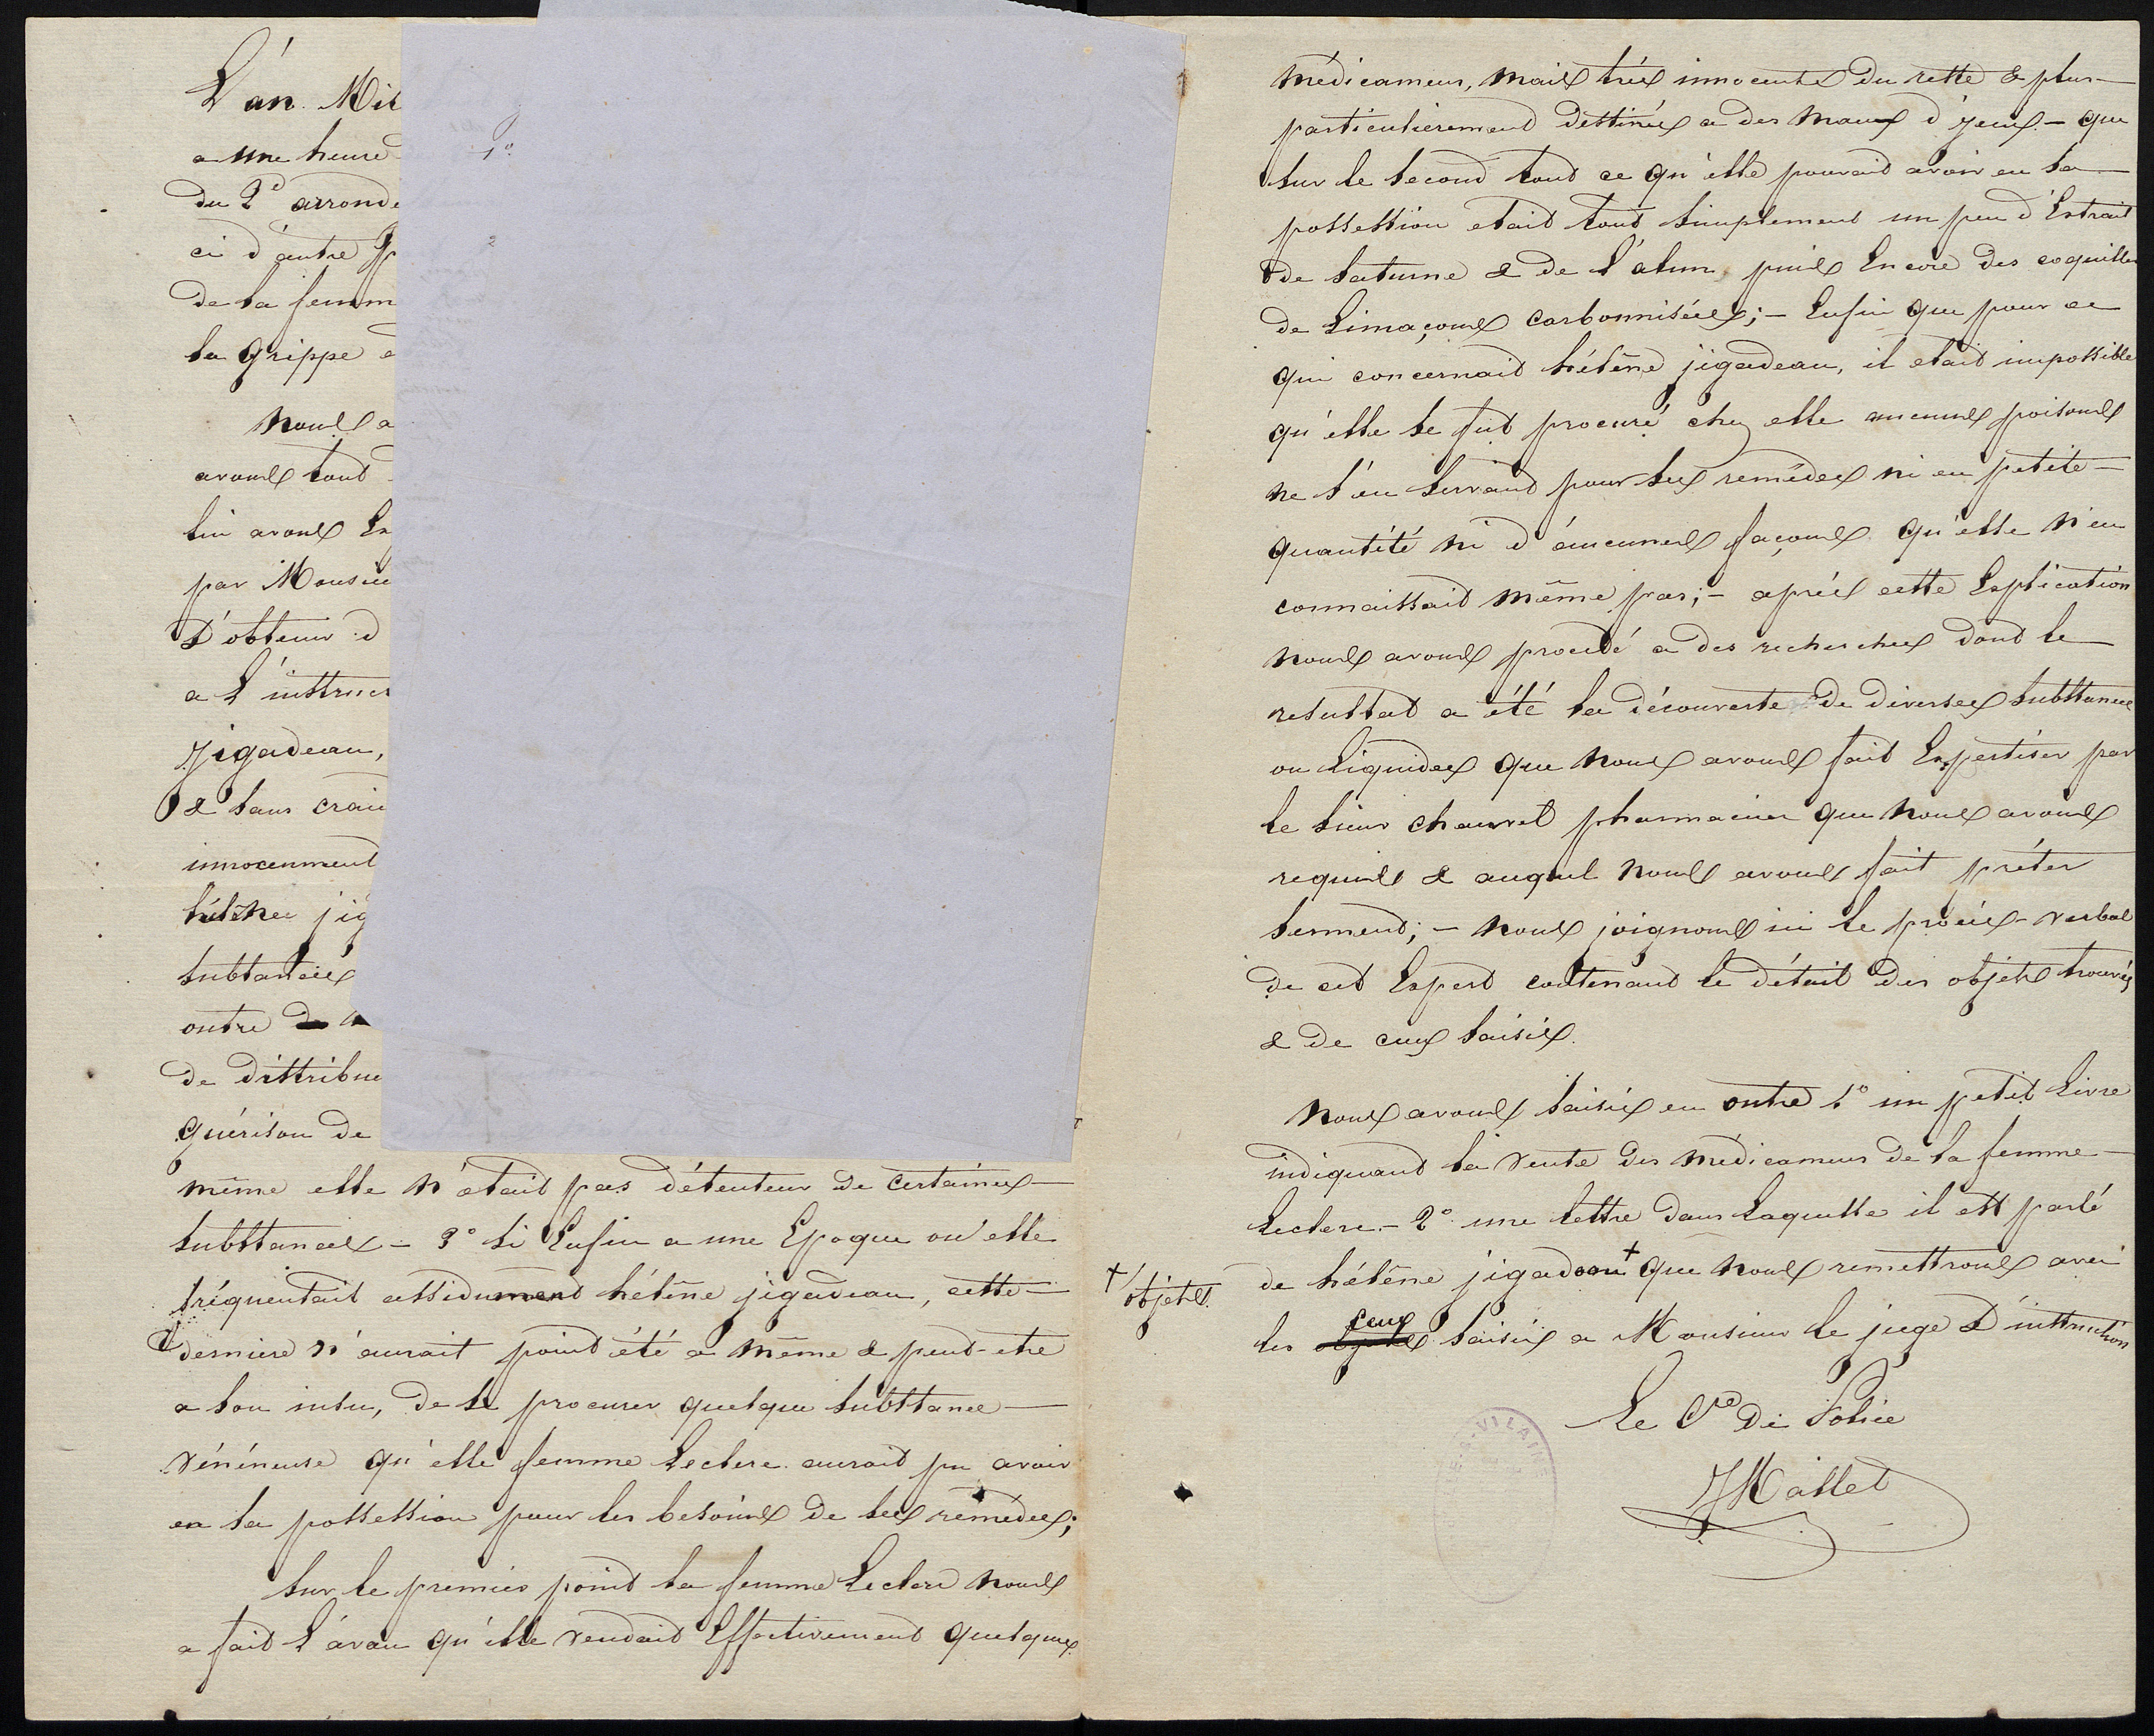 L'an Mil
a une heure
du 2e arronde
ci d'autre p
de la femm
la Grippe e
nous a
avons tout
lui avons Ex
par Monsie
d'obtenir d
a l'instruct
Jigadeau,
& sans crain
innocemment
hélène jig
substances
outre de
de distribue
guérison de
même elle n'était pas détenteur de certaines
substances - 3° si Enfin a une Epoque ou elle
fréquentait assidument hélène jigadeau, cette
derniere n'aurait point été a même & peut-etre
a son insu, de se procurer quelque substance
vénéneuse qu'elle femme Leclerc aurait pu avoir
en sa possession pour les besoins de ses remèdes;
sur le premier point la femme Leclerc nous
a fait l'aveu qu'elle vendait Effectivement quelques
1°
2
médicamens, mais très innocents du reste & plus
particulièrement destinés a des maux d'yeux. - que
sur le second tout ce qu'elle pouvait avoir en sa
possession etait tout simplement un peu d'Extrait
de saturne & de l'alun, puis Encore des coquilles
de Limaçons carbonnisées; - Enfin que pour ce
qui concernait hélène jigadeau, il etait impossible
qu'elle se fut procuré chez elle aucuns poisons
ne s'en servant pour ses remèdes ni en petite
quantité ni d'aucunes façons qu'elle n'en
connaissait même pas; - après cette Explication
nous avons procédé a des recherches dont le
resultat a été la découverte de diverses substances
ou liquides que nous avons fait Expertiser par
le sieur chauvel pharmacien que nous avons
requis & auquel nous avons fait prêter
serment; - nous joignons ici le procès-verbal
de cet Expert contenant le détail des objets trouvés
& de ceux saisis.
nous avons saisis en outre 1° un petit Livre
indiquant la vente des médicamens de la femme
Leclerc. - 2° une lettre dans laquelle il est parlé
de hélène jigadeau + que nous remettrons avec
+ objets.
les objets ceux saisis a Monsieur le juge d'instruction
Le Cre de Police
JMallet
LE-&-VILAINE